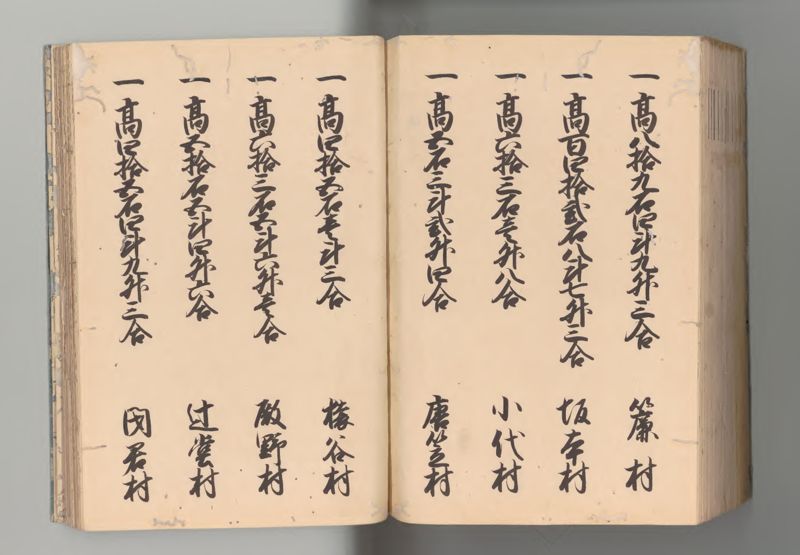 一 高八拾九石四斗九升三合 簾村
一 高百四拾弐石八斗七升三合 坂本村
一 高六拾三石壱升八合 小代村
一 高五石三斗弐升四合 唐笠村
一 高四拾五石壱斗三合 谷村
一 高六拾三石五斗六升壱合 殿野村
一 高五拾石五斗四升六合 辻堂村
一 高四拾五石四斗九升三合 閉君村